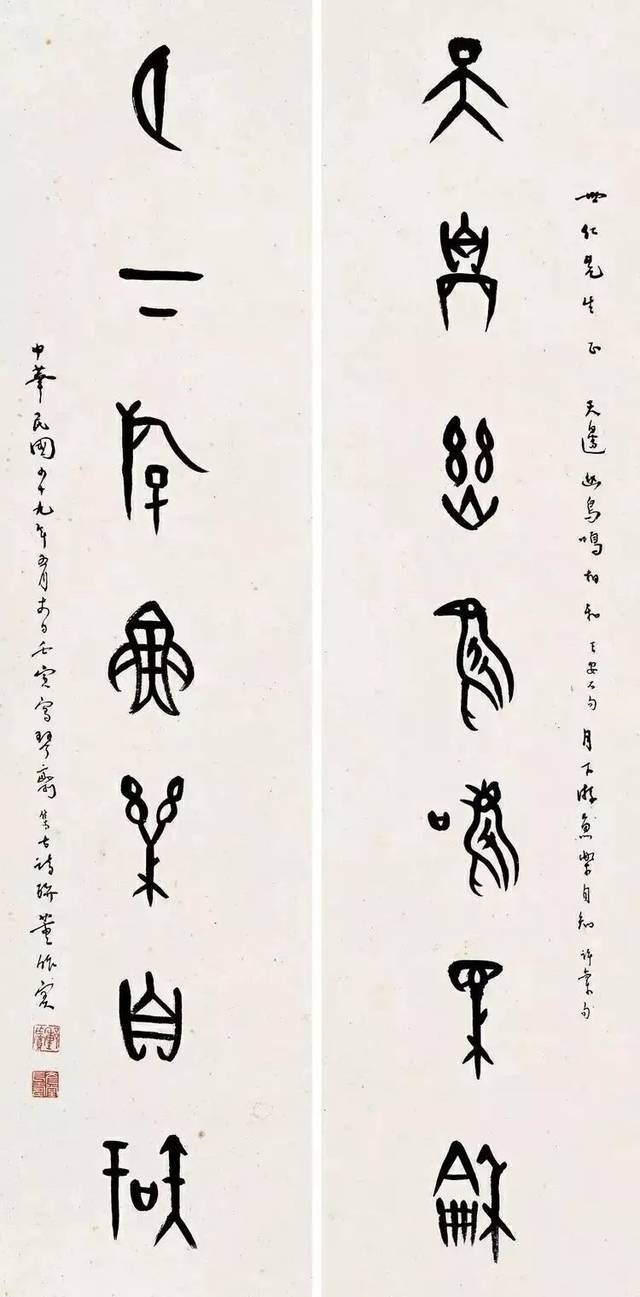 世仁先生 正 天邊幽鳥鳴相和 王安石句 月下游魚樂自知 許棠句
天邊幽鳥鳴相和
月下游魚樂自知
中華民國十九年五月日壬寅寫琴齋集古詩聯 董作賓